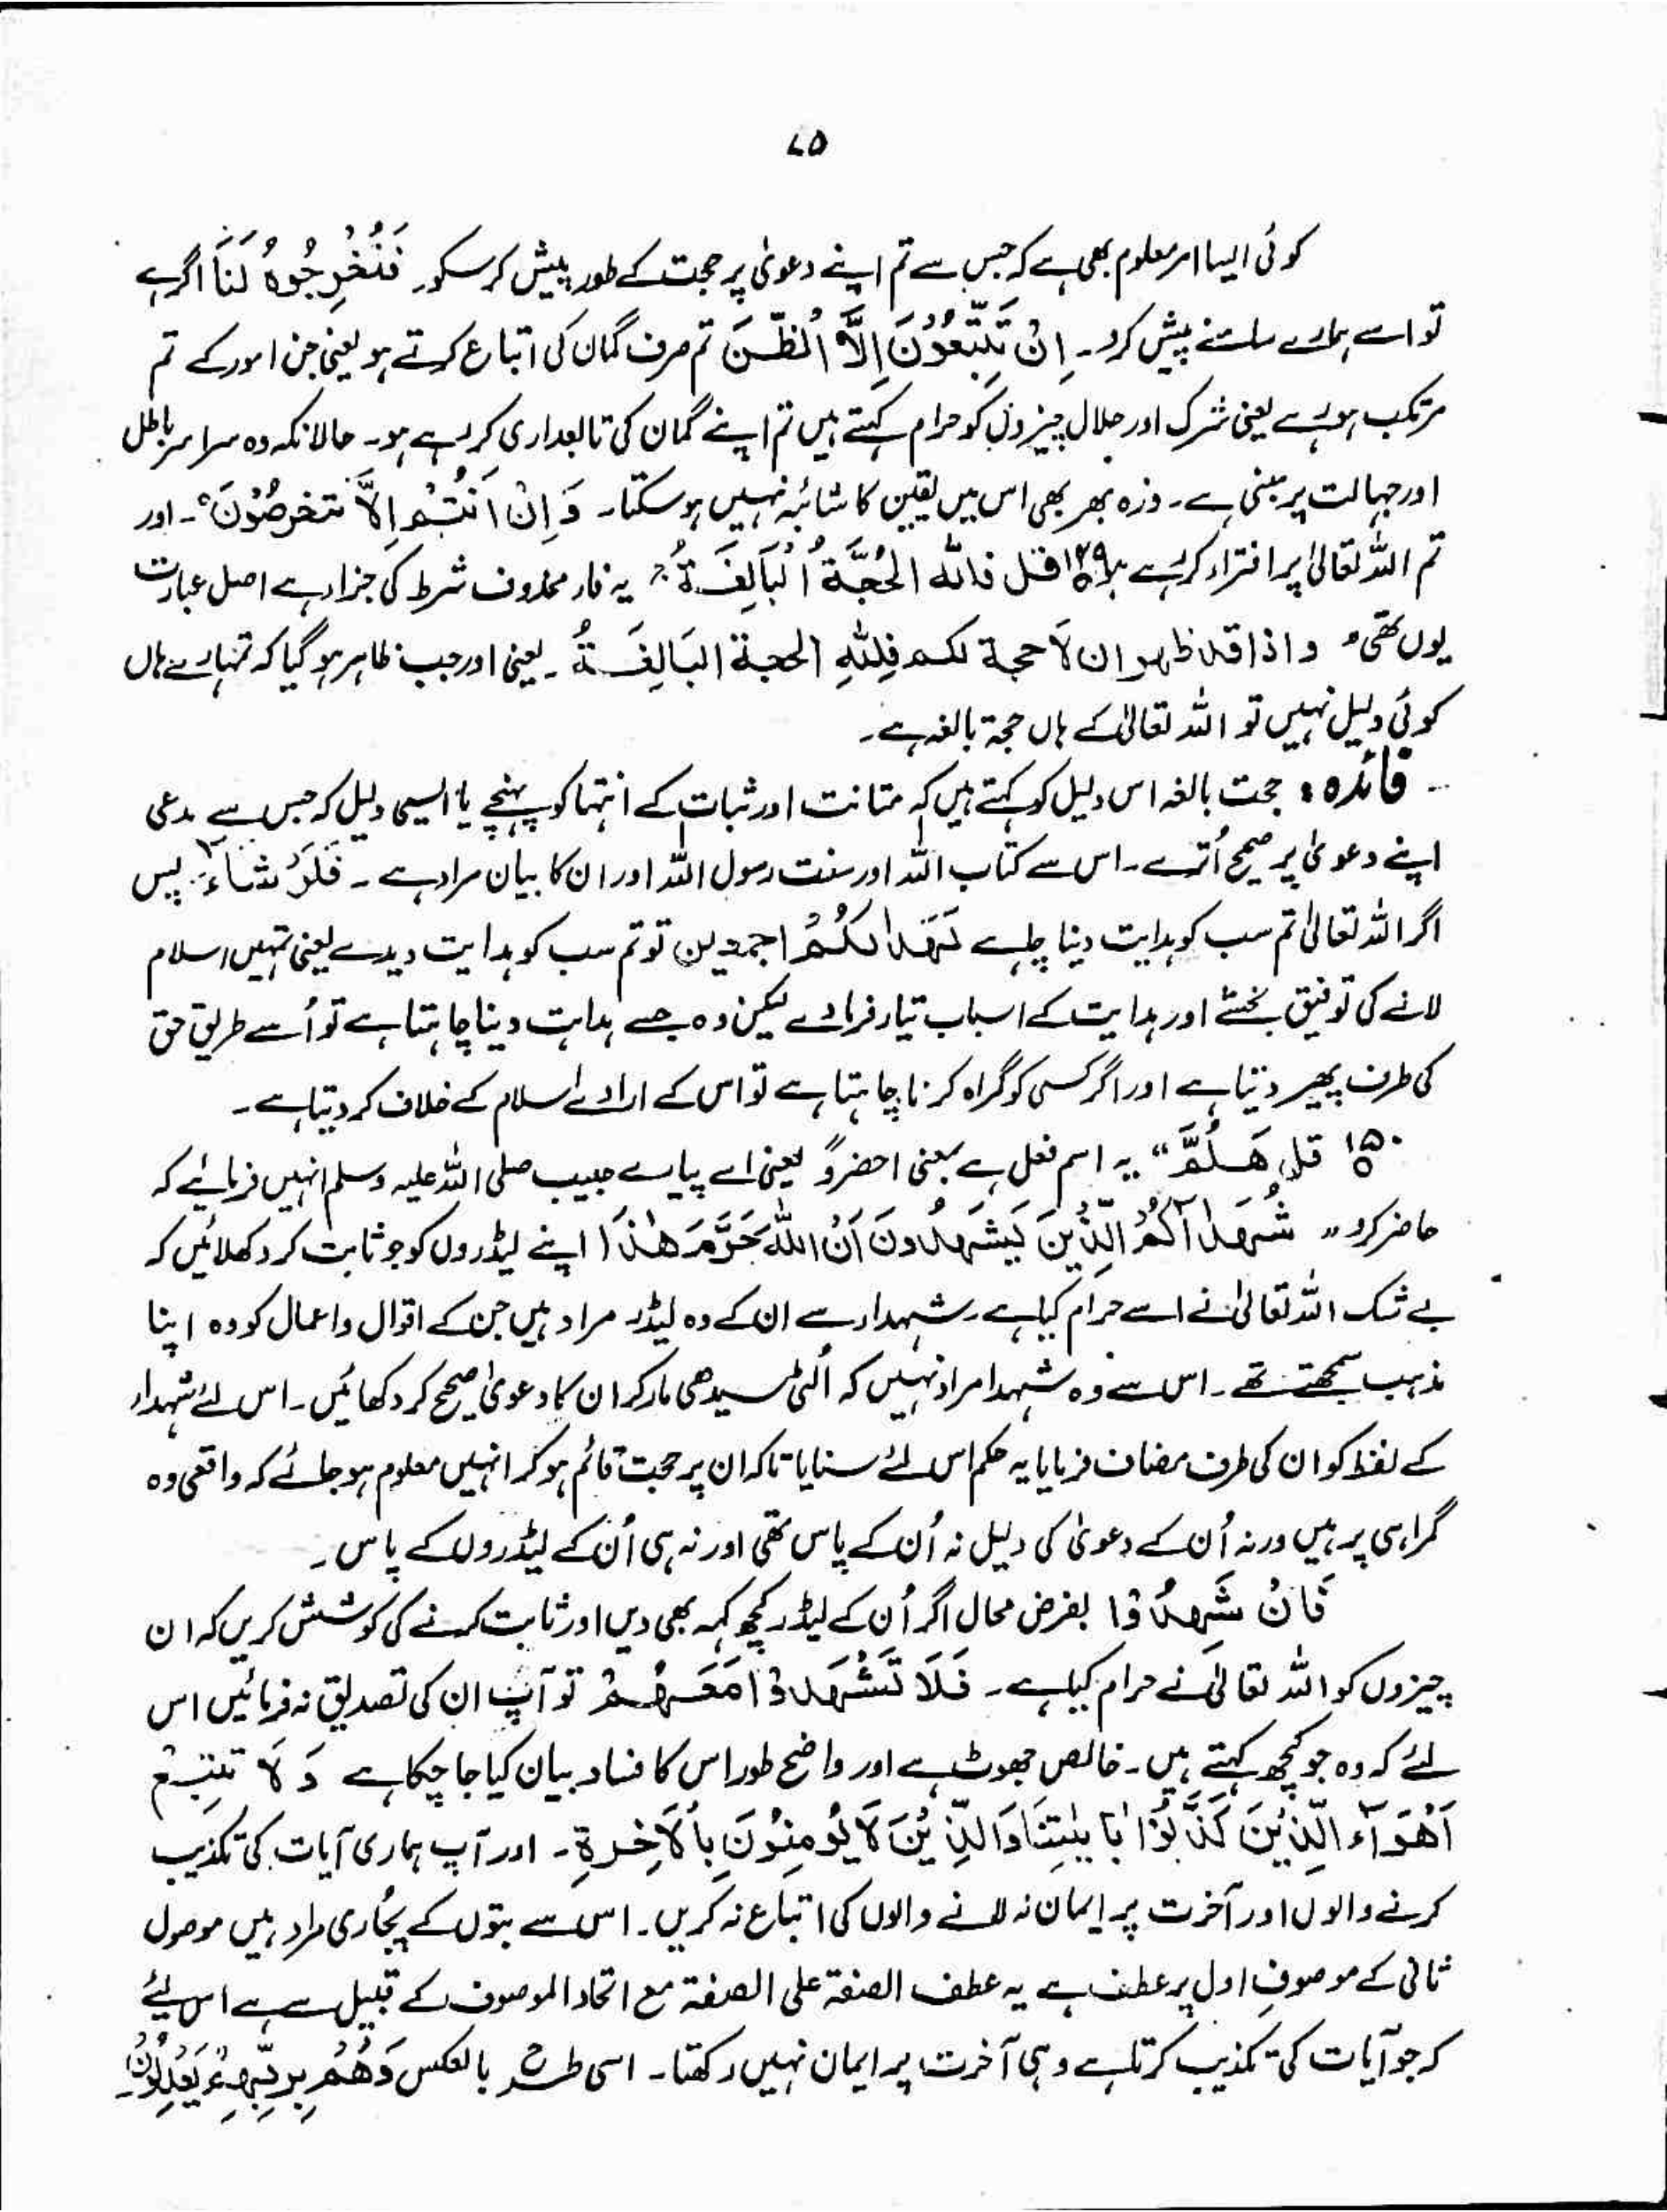 ۷۵
کوئی ایسا امر معلوم بھی ہے کہ جس سے تم اپنے دعویٰ پر حجت کے طور پیش کر سکو۔ فَتُخْرِجُوهُ لَنَا اگر ہے
تو اسے ہمارے سامنے پیش کرو۔ اِنْ تَتَّبِعُوْنَ اِلَّا الْظَّنَ تم صرف گمان کی اتباع کرتے ہو یعنی جن امور کے تم
مرتکب ہو رہے یعنی شرک اور حلال چیزوں کو حرام کہتے ہیں تم اپنے گمان کی تابعداری کر رہے ہو۔ حالانکہ وہ سراسر باطل
اور جہالت پر مبنی ہے۔ ذرہ بھر بھی اس میں یقین کا شائبہ نہیں ہو سکتا۔ وَ اِنْ اَنْتُمْ اِلَّا تَخْرُصُوْنَ۔ اور
تم اللہ تعالیٰ پر افتراء کر رہے ہو ۱۴۹ قل فللّٰہ الْحُجَّةُ الْبَالِغَةُ یہ فاء محذوف شرط کی جزاء ہے اصل عبارت
یوں تھی واذا قد ظهر ان لَا حجة لكم فلِلّٰهِ الحجة البَالِغَةُ۔ یعنی اور جب ظاہر ہو گیا کہ تمہارے ہاں
کوئی دلیل نہیں تو اللہ تعالیٰ کے ہاں حجۃ بالغہ ہے۔
فائدہ : حجت بالغہ اس دلیل کو کہتے ہیں کہ متانت اور ثبات کے انتہا کو پہنچے یا ایسی دلیل کہ جس سے مدعی
اپنے دعویٰ پر صحیح اُترے۔ اس سے کتاب اللہ اور سنت رسول اللہ اور ان کا بیان مراد ہے۔ فَلَوْ شَاءَ پس
اگر اللہ تعالیٰ تم سب کو ہدایت دینا چاہے لَهَدٰىكُمْ اجمعین تو تم سب کو ہدایت دیدے یعنی تمہیں اسلام
لانے کی توفیق بخشے اور ہدایت کے اسباب تیار فرما دے لیکن وہ جسے ہدایت دینا چاہتا ہے تو اُسے طریق حق
کی طرف پھیر دیتا ہے اور اگر کسی کو گمراہ کرنا چاہتا ہے تو اس کے ارادے اسلام کے خلاف کر دیتا ہے۔
۱۵۰ قل هَلُمَّ “ یہ اسم فعل ہے بمعنی احضروْ یعنی اے پیارے حبیب صلی اللہ علیہ وسلم انہیں فرمائیے کہ
حاضر کرو ” شُهَدَآءَكُمُ الَّذِيْنَ يَشْهَدُوْنَ اَنَّ اللّٰهَ حَرَّمَ هٰذَا اپنے لیڈروں کو جو ثابت کر دکھلائیں کہ
بے شک اللہ تعالیٰ نے اسے حرام کیا ہے۔ شہداء سے ان کے وہ لیڈر مراد ہیں جن کے اقوال و اعمال کو وہ اپنا
مذہب سمجھتے تھے۔ اس سے وہ شہدا مراد نہیں کہ اُلٹی سیدھی مار کر ان کا دعویٰ صحیح کر دکھائیں۔ اس لئے شہداء
کے لفظ کو ان کی طرف مضاف فرمایا یہ حکم اس لئے سنایا تاکہ ان پر حجت قائم ہو کر انہیں معلوم ہو جائے کہ واقعی وہ
گمراہی پر ہیں ورنہ اُن کے دعویٰ کی دلیل نہ اُن کے پاس تھی اور نہ ہی اُن کے لیڈروں کے پاس۔
فَاِنْ شَهِدُوْا بفرض محال اگر اُن کے لیڈر کچھ کہہ بھی دیں اور ثابت کرنے کی کوشش کریں کہ ان
چیزوں کو اللہ تعالیٰ نے حرام کیا ہے۔ فَلَا تَشْهَدْ مَعَهُمْ تو آپ ان کی تصدیق نہ فرمائیں اس
لئے کہ وہ جو کچھ کہتے ہیں۔ خالص جھوٹ ہے اور واضح طور اس کا فساد بیان کیا جا چکا ہے وَ لَا تَتَّبِعْ
اَهْوَآءَ الَّذِيْنَ كَذَّبُوْا بِاٰيٰتِنَا وَالَّذِيْنَ لَا يُؤْمِنُوْنَ بِالْاٰخِرَةِ۔ اور آپ ہماری آیات کی تکذیب
کرنے والوں اور آخرت پر ایمان نہ لانے والوں کی اتباع نہ کریں۔ اس سے بتوں کے پجاری مراد ہیں موصول
ثانی کے موصوف اول پر عطف ہے یہ عطف الصفۃ علی الصفۃ مع اتحاد الموصوف کے قبیل سے ہے اس لئے
کہ جو آیات کی تکذیب کرتا ہے وہی آخرت پر ایمان نہیں رکھتا۔ اسی طرح بالعکس وَهُمْ بِرَبِّهِمْ يَعْدِلُوْنَ۔